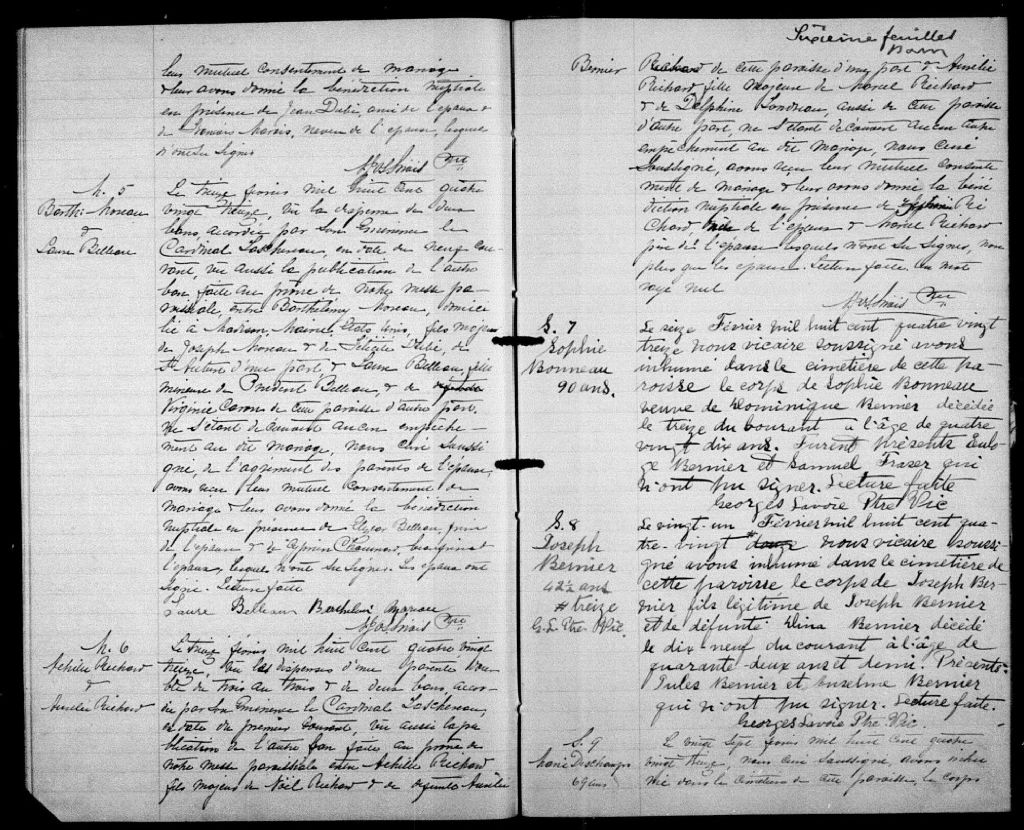 leur mutuel consentement de mariage
& leur avons donné la bénédiction nuptiale
en présence de Jean Dubé, ami de l'epoux &
de Marais, neveu de l'epoux, lesquels
n'ont su signer
Ptre
M. 5
Barth: Moreau
&
Laure Belleau
Le treize février mil huit cent quatre
vingt treize, vu la dispense de deux
bans accordée par Son Eminence le
Cardinal Taschereau, en date du neuf cou-
rant, vu aussi la publication de l'autre
ban faite au prône de notre messe pa-
roissiale, entre Barthélémy Moreau, domici
lié à Madison, Maine, Etats Unis, fils majeur
de Joseph Moreau & de Félicité Dubé, de
St d'une part & Laure Belleau, fille
mineure de Prudent Belleau & de
Virginie Caron de cette paroisse d'autre part,
ne s'étant découvert aucun empêche-
ment au dit mariage, nous curé soussi
gné, de l'agrément des parents de l'epouse,
avons reçu leur mutuel consentement de
mariage & leur avons donné la bénédiction
nuptiale en présence de Elzéar Belleau, frère
de l'epouse & de Cyprien Chouinard, beaufrère de
l'epoux, lesquels n'ont su signer. Les epoux ont
signé. Lecture faite
Laure Belleau Barthelmi Moreau
Ptre
M. 6
Achille Richard
&
Aurélie Richard
Le treize février mil huit cent quatre vingt
treize, vu les dispenses d'une parenté dou-
ble de trois au trois & de deux bans, accor-
dées par Son Eminence le Cardinal Taschereau,
en date du premier courant, vu aussi la pu
blication de l'autre ban faite au prone de
notre messe paroissiale entre Achille Richard
fils majeur de Noël Richard & de défunte Aurélie
Sixième feuillet
Bernier
Richard de cette paroisse d'une part & Aurélie
Richard fille majeure de Marcel Richard
& de Delphine Londreau aussi de cette paroisse
d'autre part, ne s'étant découvert aucun autre
empêchement au dit mariage, nous curé
soussigné, avons reçu leur mutuel consente
ment de mariage & leur avons donné la béné
diction nuptiale en présence de Ri
chard, de l'epoux & Marcel Richard
père de l'epouse lesquels n'ont su signer, non
plus que les epoux. Lecture faite. Un mot
rayé nul
Ptre
S. 7
Sophie
Bonneau
90 ans.
Le seize Février mil huit cent quatre vingt
treize nous vicaire soussigné avons
inhumé dans le cimetière de cette pa-
roisse le corps de Sophie Bonneau
veuve de Dominique Bernier décédée
le treize du courant à l'âge de quatre
vingt dix ans. Furent présents Eulo-
ge Bernier et Samuel Fraser qui
n'ont pu signer. Lecture faite
Georges Lavoie Ptre Vic
S. 8
Joseph
Bernier
42½ ans
# treize
G. L. Ptre Vic.
Le vingt-un Février mil huit cent qua-
tre-vingt # douze nous vicaire soussi-
gné avons inhumé dans le cimetière de
cette paroisse le corps de Joseph Ber-
nier fils légitime de Joseph Bernier
et de défunte Dina Bernier décédé
le dix neuf du courant à l'âge de
quarante-deux ans et demi. Présents.
Jules Bernier et Anselme Bernier
qui n'ont pu signer. Lecture faite.
Georges Lavoie Ptre Vic.
S. 9
Marie Deschamps
69 ans
Le vingt sept février mil huit cent quatre
vingt treize, nous curé soussigné, avons inhu
mé dans le cimetière de cette paroisse, le corps